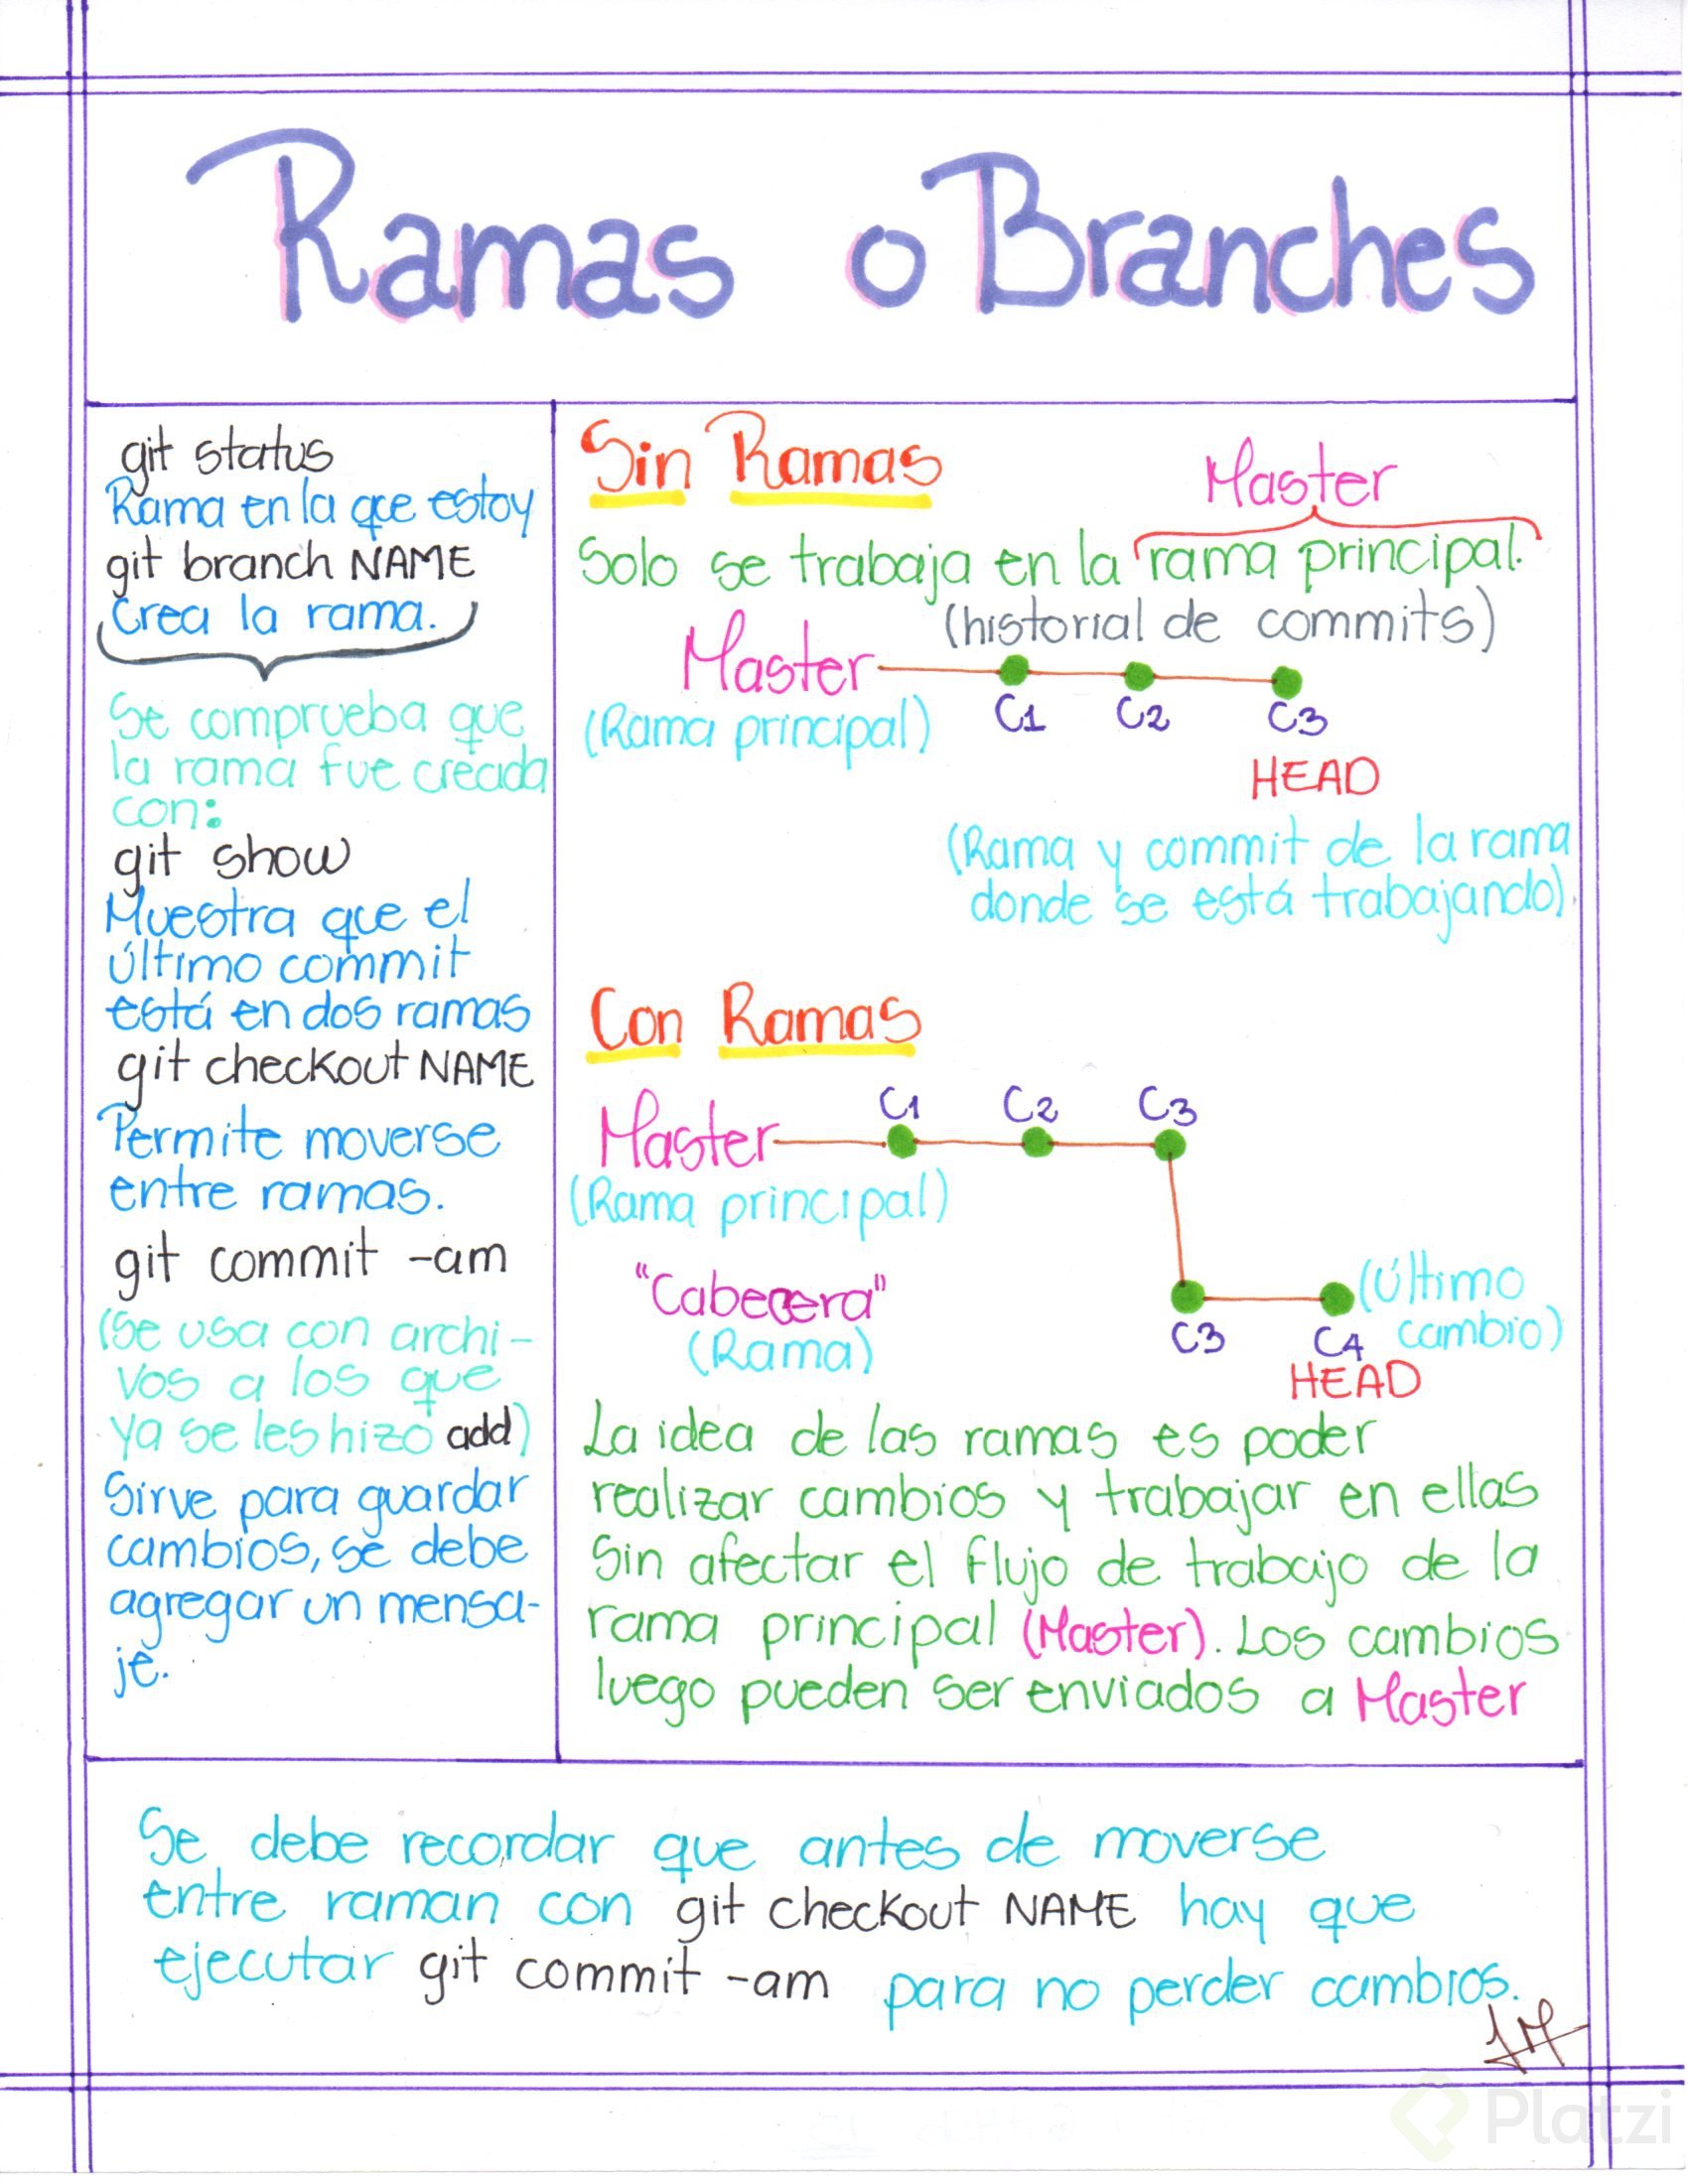 Ramas o Branches
git status
Rama en la que estoy
git branch NAME
Crea la rama.
Se comprueba que
la rama fue creada
con:
git show
Muestra que el
último commit
está en dos ramas
git checkout NAME
Permite moverse
entre ramas.
git commit -am
(Se usa con archi-
vos a los que
ya se les hizo add)
Sirve para guardar
cambios, se debe
agregar un mensa-
je.
Sin Ramas
Master
Solo se trabaja en la rama principal.
(historial de commits)
Master
(Rama principal)
C1 C2 C3
HEAD
(Rama y commit de la rama
donde se está trabajando).
Con Ramas
C1 C2 C3
Master
(Rama principal)
"Cabecera"
(Rama)
(Último
cambio)
C3 C4
HEAD
La idea de las ramas es poder
realizar cambios y trabajar en ellas
Sin afectar el flujo de trabajo de la
rama principal (Master). Los cambios
luego pueden ser enviados a Master
Se debe recordar que antes de moverse
entre raman con git checkout NAME hay que
ejecutar git commit -am para no perder cambios.
JM
Platzi